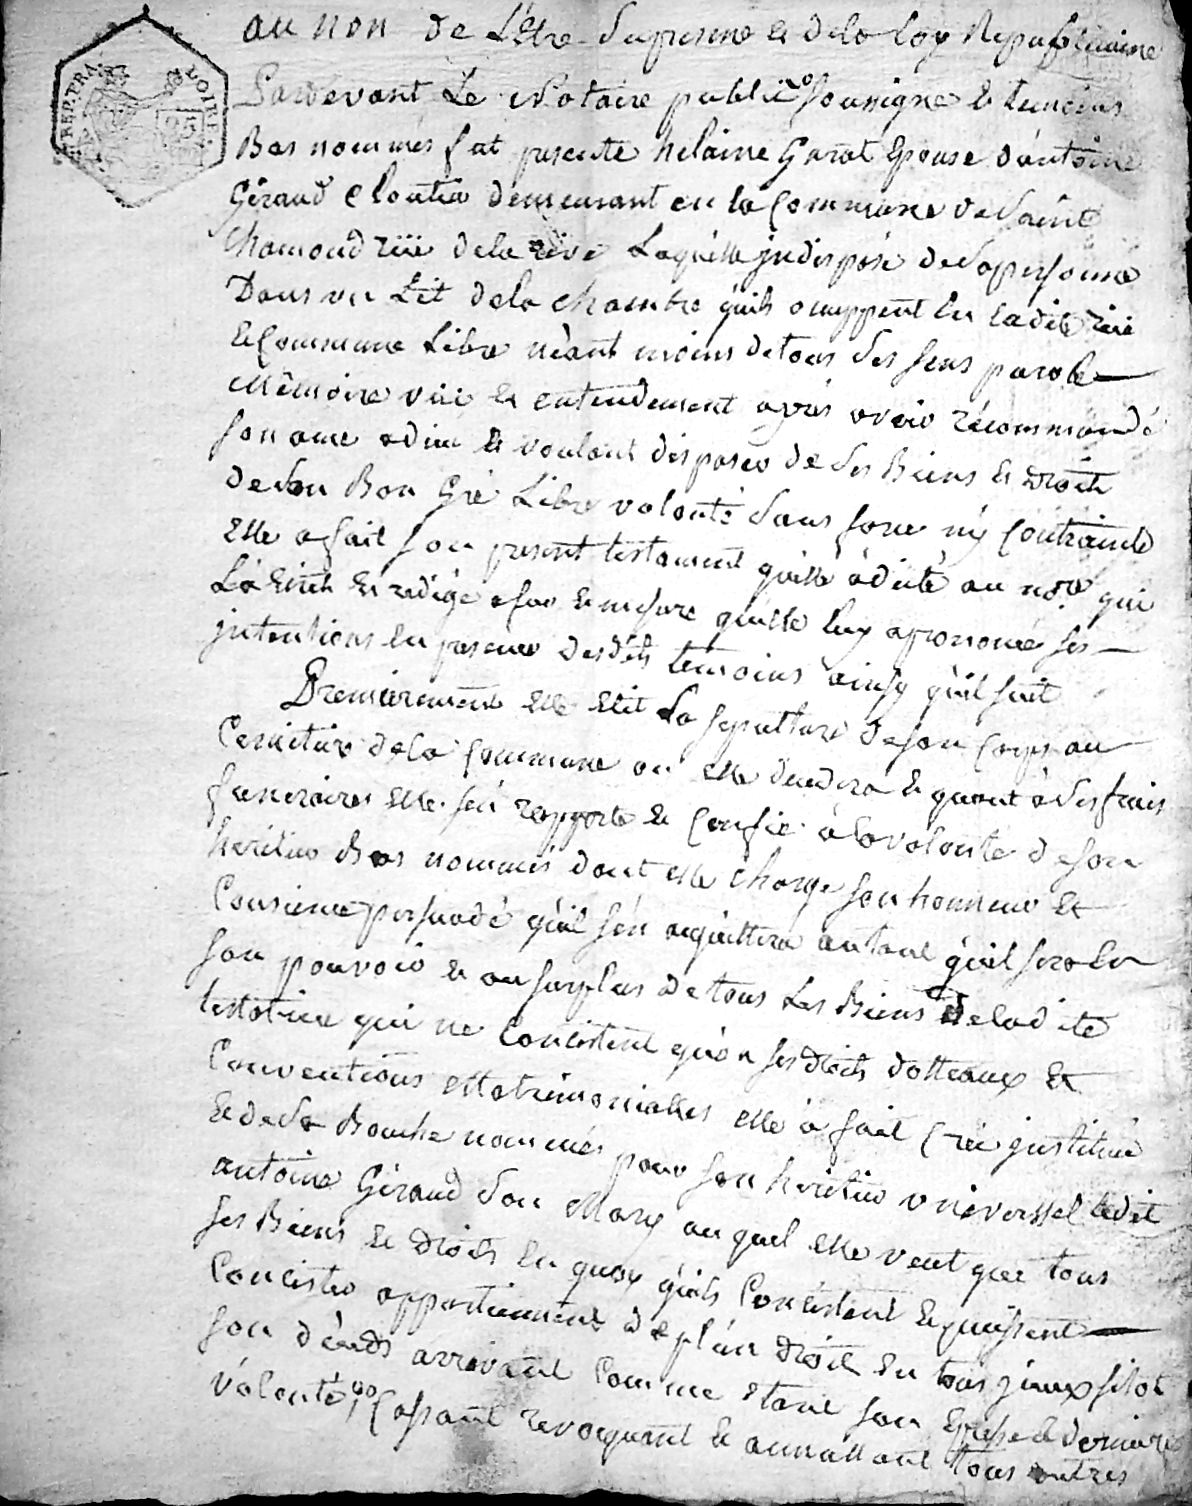 REP. FRA. LOIRE.
25
au non de L'Etre Supresme & dela loy Republicaine
Pardevant Le Notaire public soussigné & temoins
Bas nommés fut presente helaine Garat Epouse d'antoine
Géraud Cloutier demeurant en la Commune de Saint
Chamond rüe dela rive Laquelle jndisposé desapersonne
Dans un Lit dela chambre quils occuppent en ladite rüe
& Commune Libre néant moins detous ses sens parole
Mémoire vüe & entendement aprés avoir récommandé
son ame adieu & voulant disposer de ses Biens & Droits
deson Bon Gré Libre volonté sans force ny Contrainte
Elle a fait son present testament quelle à dicté au nore qui
L'à Ecrit & redigé afur & mesure quelle luy aprononcé ses
jntentions en presence desdits temoins ainsy quil suit
Premierement Elle Elit La sepulture deson Corps au
Cemitiere dela Commune ou Elle decedera & quant à ses frais
funeraires Elle s'en rapporte & Confie à la volonté deson
heritier Bas nommés dont elle charge son honneur &
Consience persuadé quil s'en acquittera autant quil sera en
son pouvoir & au surplus detous Les Biens deladite
testatrice qui ne Concistent qu'en ses droits dotteaux &
Conventions Mattrimonialles elle à fait Créé jnstitué
& de sa Bouche nommés pour son heritier universsel ledit
antoine Géraud son Mary auquel elle veut que tous
ses Biens & Droits en quoy quils Concistent & puissent
Concister appartiennent de plein droit en tous jceux sitot
son décéds arrivant Comme etant son Expresse & derniere
volonté, Cassant revoquant & annullant tous autres